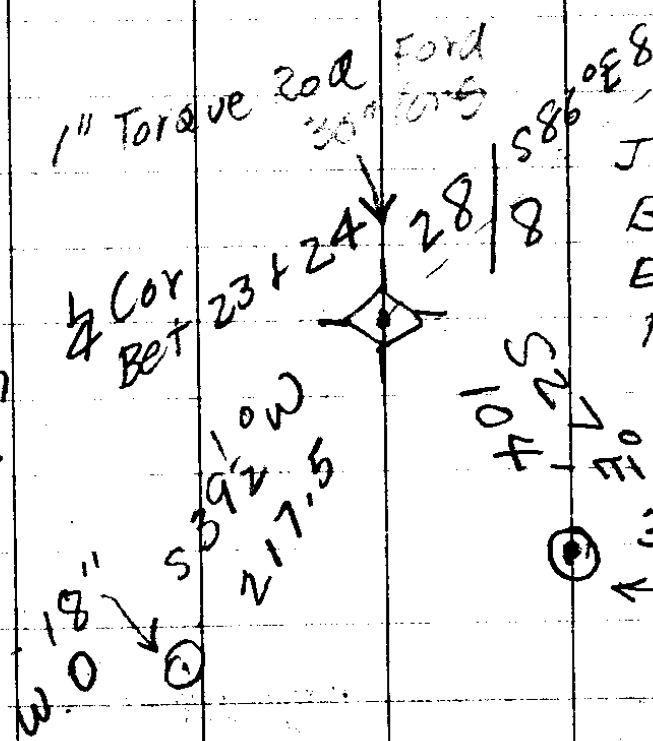 1" Torque Rod Ford
30"
S 86° E 8
28 8
¼ Cor
Bet 23 + 24
S 39½° W
217.5
S 27° E
104
18"
W.O